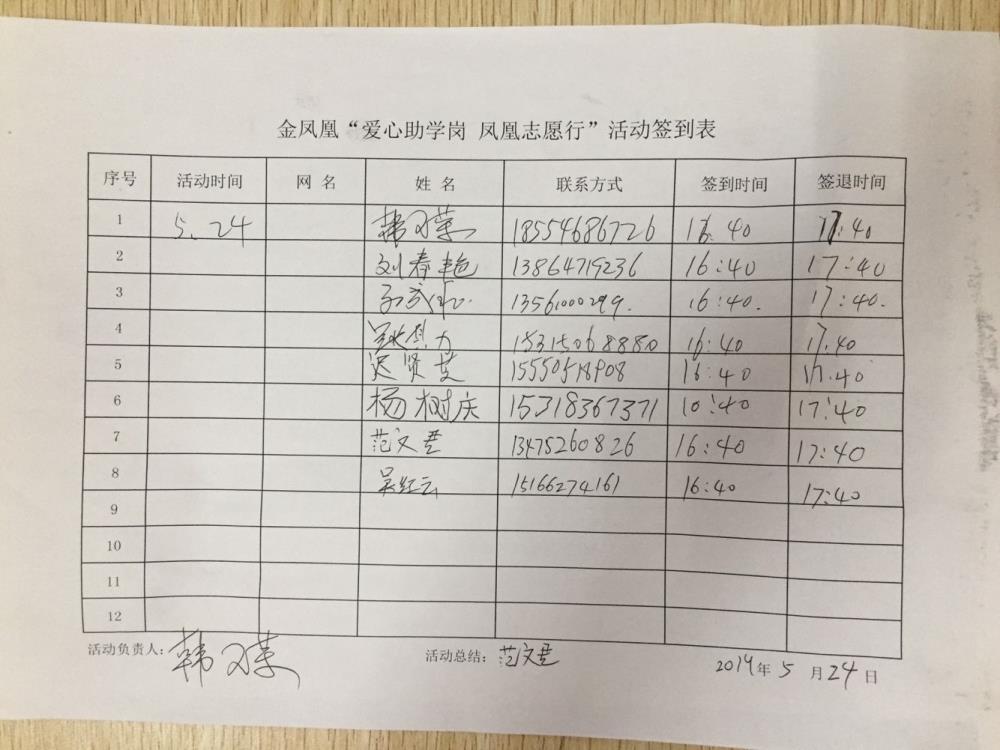 金凤凰“爱心助学岗 凤凰志愿行”活动签到表
序号 活动时间 网 名 姓 名 联系方式 签到时间 签退时间
1 5.24 韩习荣 18554686726 16:40 17:40
2 刘春艳 13864719236 16:40 17:40.
3 13561000299. 16:40. 17:40.
4 15315068880 16:40 17:40
5 迟贤芝 15550518908 16:40 17:40
6 杨树庆 15318367371 16:40 17:40
7 范文君 13475260826 16:40 17:40
8 吴红云 15166274161 16:40 17:40
9
10
11
12
活动负责人：韩习荣 活动总结：范文君 2019年5月24日